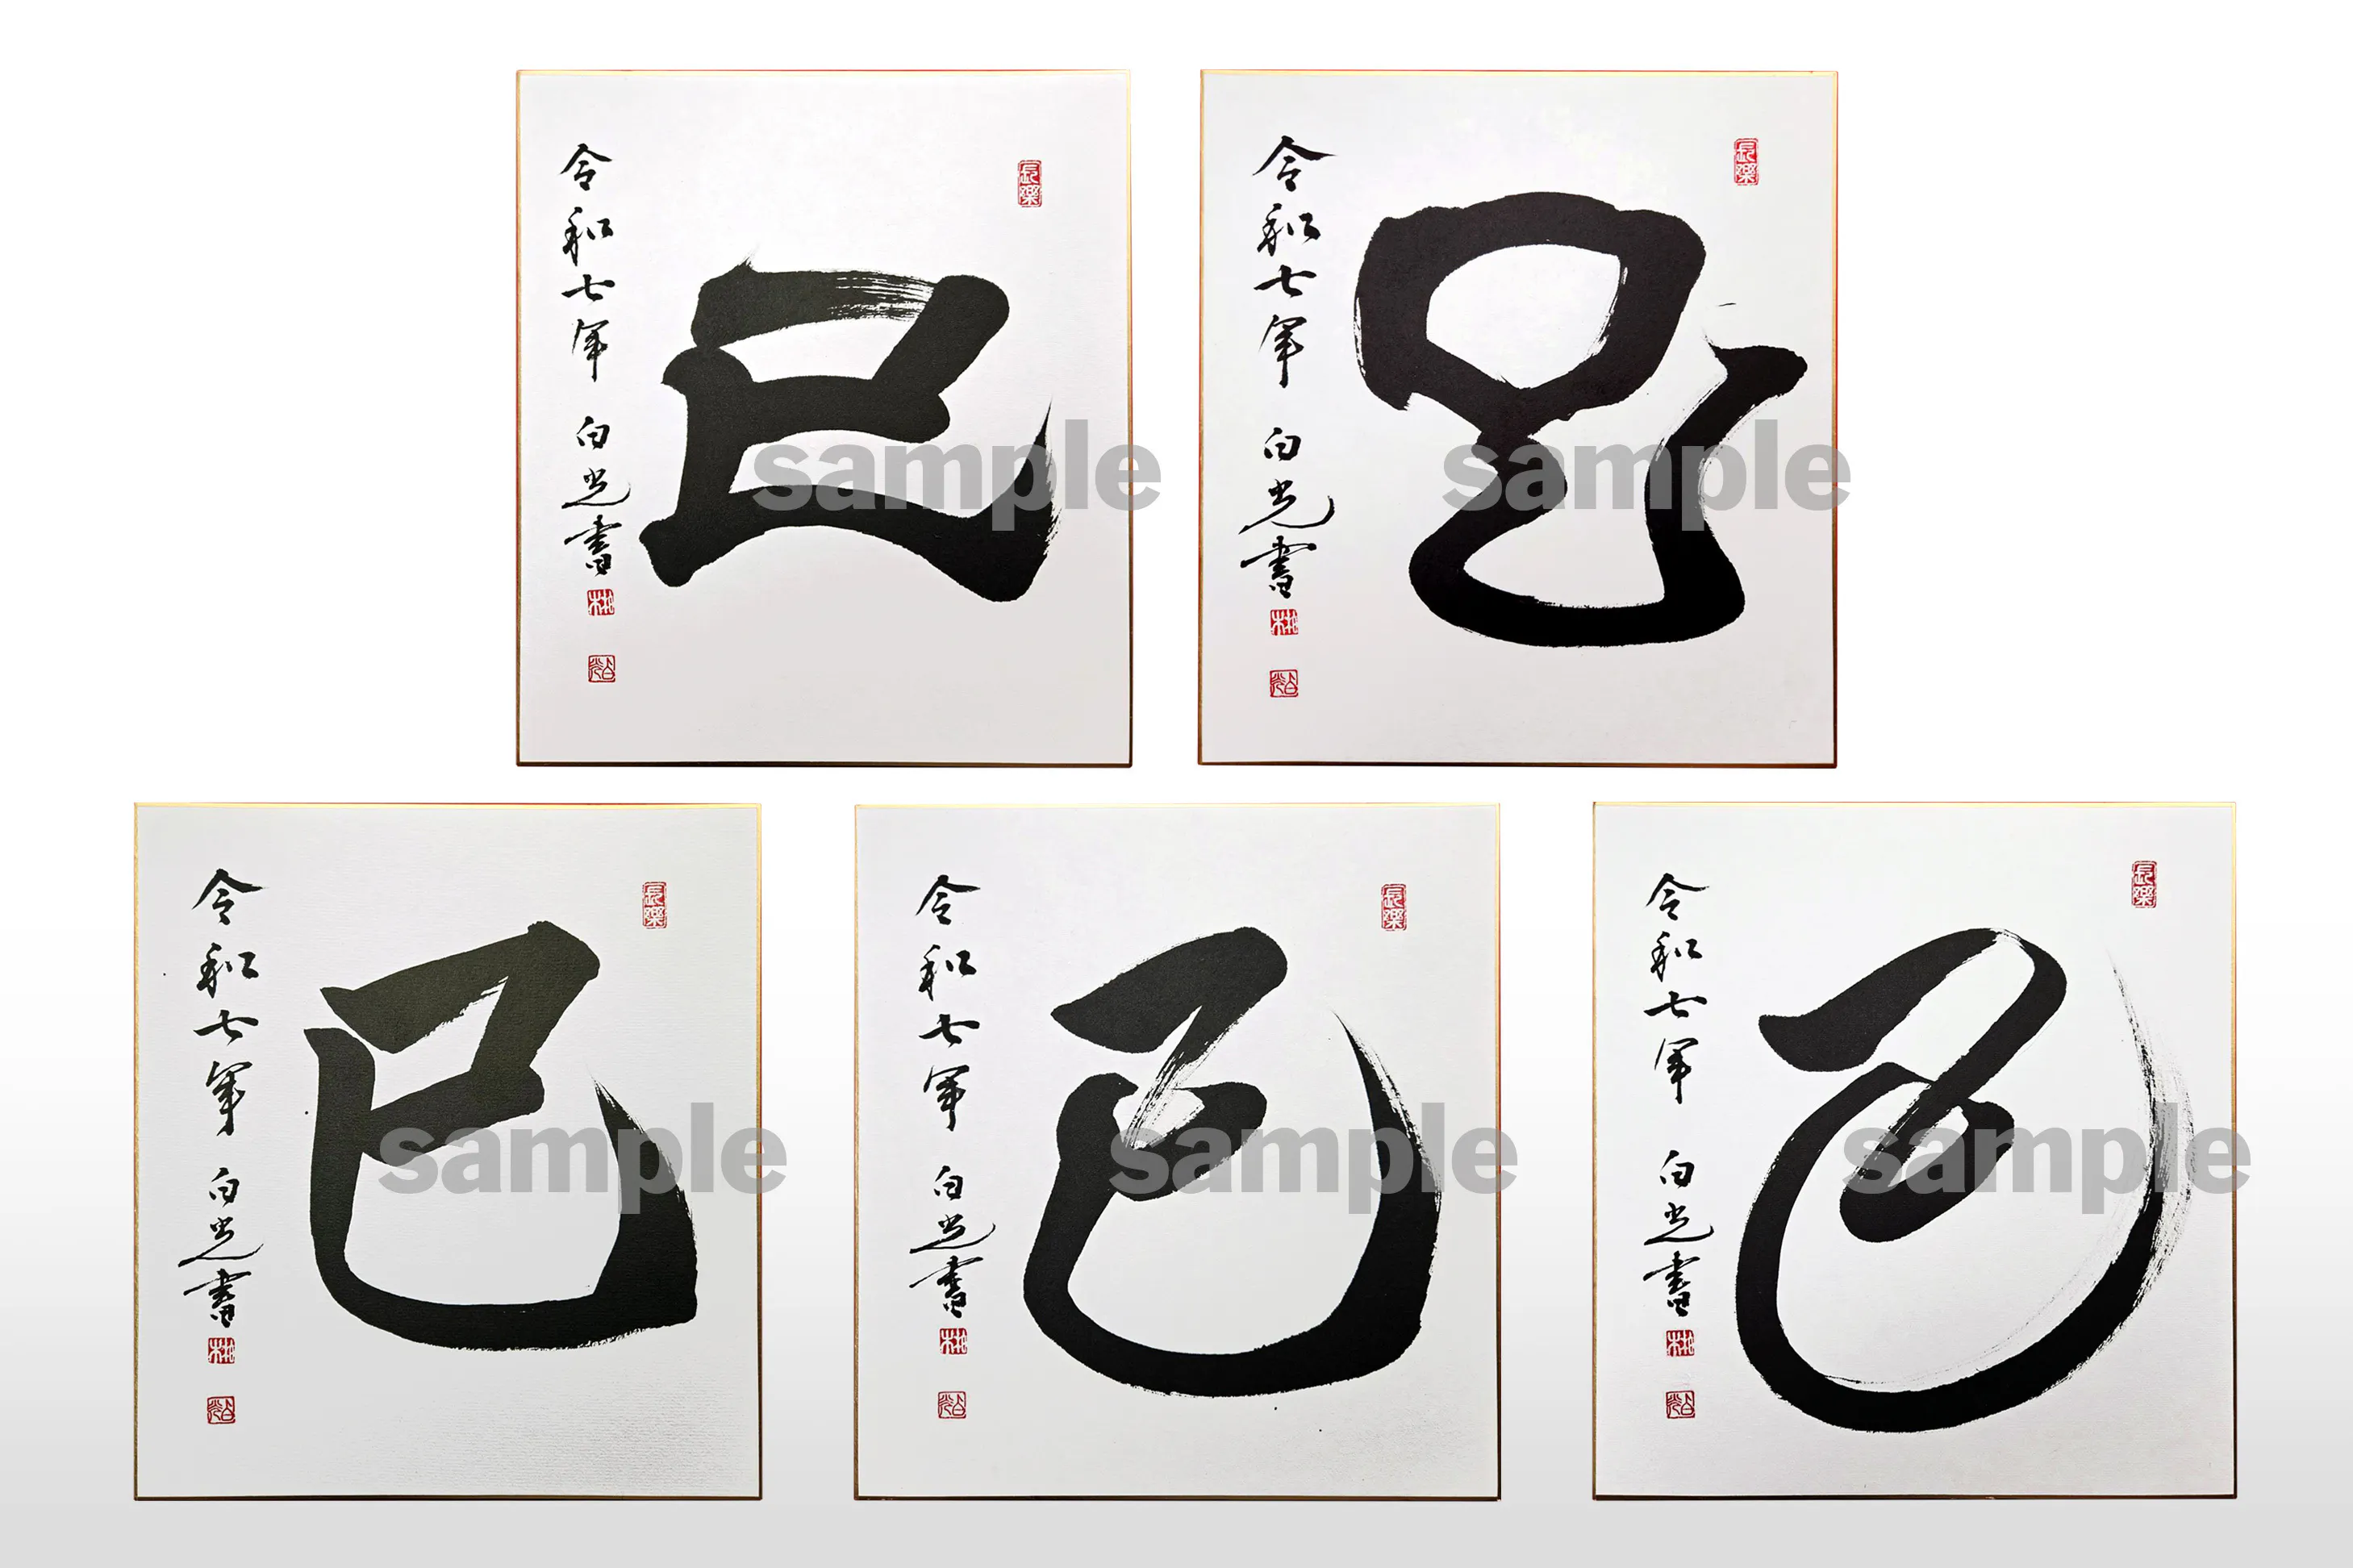 令和七年 白光書
巳
sample
令和七年 白光書
巳
sample
令和七年 白光書
巳
sample
令和七年 白光書
巳
sample
令和七年 白光書
巳
sample